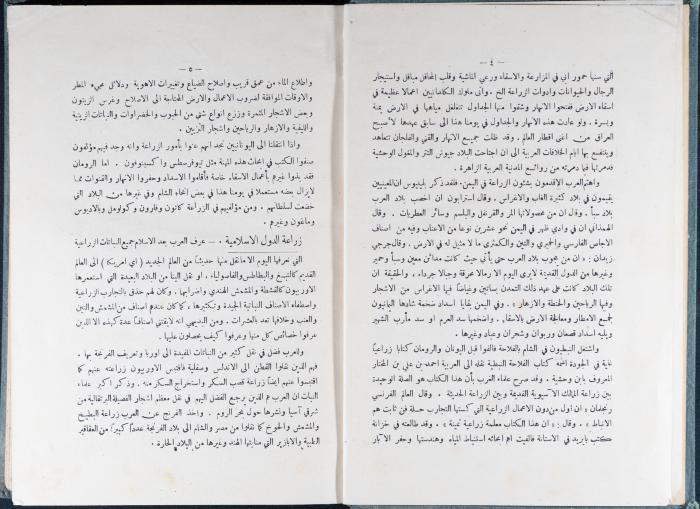 — ٤ —
التي سنها حمور ابي في المزارعة والاسقاء ورعي الماشية وقلب المحافل مبافل واستيجار
الرجال والحيوانات وادوات الزراعة الخ . وانى ملوك الكلدانيين اعمالا عظيمة في
اسقاء الارض ففتحوا الانهار وشقوا منها الجداول تتغلغل مياهها في الارض يمنة
ويسرة . ولو عادت هذه الانهار والجداول في يومنا هذا الى سابق عهدها لأصبح
العراق من اغنى اقطار العالم . وقد ظلت جميع الانهار والقني والفلجان تتعاهد
وينتفع بها ايام الخلافات العربية الى ان اجتاحت البلاد جيوش التتر والمغول الوحشية
فدمرتها فيما دمرته من روائع المدنية العربية الزاهرة .
واهتم العرب الاقدمون بشئون الزراعة في اليمن . فقد ذكر بلينيوس ان المعينيين
يقيمون في بلاد كثيرة الغاب والاغراس . وقال استرابون ان اخصب بلاد العرب
بلاد سبأ . وقال ان من محصولاتها المر والقرنفل والبلسم وسائر العطريات . وقال
الهمداني ان في وادي ظهر في اليمن نحو عشرين نوعا من الاعناب وفيه من اصناف
الاجاص الفارسي والحميري والتين والكمثرى ما لا مثيل له في الارض . وقال جرجي
زيدان : « ان من يجوب بلاد العرب حتى يأتي حيث كانت مدائن معين وسبأ وحمير
وغيرها من الدول القديمة لا يرى اليوم الا رمالا محرقة وجبالا جرداء ، والحقيقة ان
تلك البلاد كانت على عهد ذلك التمدن بساتين وغياضا فيها الاغراس من الاشجار
وفيها الرياحين والحنطة والازهار » . وفي اليمن بقايا اسداد ضخمة شادها اليمانيون
لجمع الامطار ومعالجة الارض بالاسقاء . واضخمها سد العرم او سد مأرب الشهير
ويليه اسداد قصعان وربوان وشحران وعباد وغيرها .
واشتغل النبطيون في الشام بالفلاحة فالفوا قبل اليونان والرومان كتابا زراعيا
غاية في الجودة اسمه كتاب الفلاحة النبطية نقله الى العربية احمد بن علي بن المختار
المعروف بابن وحشية . وقد صرح علماء الغرب بأن هذا الكتاب هو الصلة الوحيدة
بين زراعة الممالك الآسيوية القديمة وبين الزراعة الحديثة . وقال العالم الفرنسي
رنجلمان « ان اول من دون الاعمال الزراعية التي كسبتها التجارب حلة فن ثابت هم
الانباط » . وقال : « ان هذا الكتاب معلمة زراعية ثمينة » . وقد طالعته في خزانة
كتب بايزيد في الاستانة فالفيت اهم ابحاثه استنباط المياه وهندستها وحفر الآبار
— ٥ —
واطلاع الماء من عمق قريب واصلاح الضياع وتغييرات الاهوية ودلائل مجيء المطر
والاوقات الموافقة لضروب الاعمال والارض المحتاجة الى الاصلاح وغرس الزيتون
وبعض الاشجار المثمرة وزرع انواع شتى من الحبوب والخضراوات والنباتات الزيتية
والليفية والازهار والرياحين واشجار التزيين .
واذا انتقلنا الى اليونانيين نجد انهم عنوا بأمور الزراعة وانه وجد فيهم مؤلفون
صنفوا الكتب في ابحاث هذه المهنة مثل تيوفرسطس واكسينوفون . اما الرومان
فقد بذوا غيرهم بأعمال الاسقاء خاصة فأقاموا الاسداد وحفروا الانهار والقنوات مما
لا يزال بعضه مستعملا في يومنا هذا في بعض انحاء الشام وفي غيرها من البلاد التي
خضعت لسلطانهم . ومن مؤلفيهم في الزراعة كاتون وفارون وكولوميل وبالاديوس
وماغون وغيرهم .
زراعة الدول الاسلامية . — عرف العرب بعد الاسلام جميع النباتات الزراعية
التي نعرفها اليوم الا ما نقل منها حديثا من العالم الجديد ( اي اميركا ) الى العالم
القديم كالتبغ والبطاطس والفاصولياء ، او نقل الينا من البلاد البعيدة التي استعمرها
الاوربيون كالقشطة والمشمش الهندي واضرابها . وكان لهم حذق بالتجارب الزراعية
واصطفاء الاصناف النباتية الجيدة وتكثيرها ، كما كان عندهم اصناف من المشمش والتين
والعنب وخلافها تعد بالعشرات . ومن البديهي انه لا يقتنى اصنافا عدة كهذه الا الذين
عرفوا خصائص كل منها وعرفوا كيف يحصلون عليها .
وللعرب فضل في نقل كثير من النباتات المفيدة الى اوربا وتعريف الفرنجة بها .
فهم الذين نقلوا القطن الى الاندلس وصقلية فاقتبس الاوربيون زراعته عنهم كما
اقتبسوا عنهم ايضا زراعة قصب السكر واستخراج السكر منه . وذكر اكبر علماء
النبات ان العرب هم الذين يرجع الفضل اليهم في نقل معظم اشجار الفصيلة البرتقالية من
شرقي آسيا ونشرها حول بحر الروم . واخذ الفرنج عن العرب زراعة البطيخ
والمشمش والخوخ كما نقلوا من مصر والشام الى بلاد الفرنجة عددا كبيرا من العقاقير
الطبية والابازير التي منابتها الهند وغيرها من البلاد الحارة .